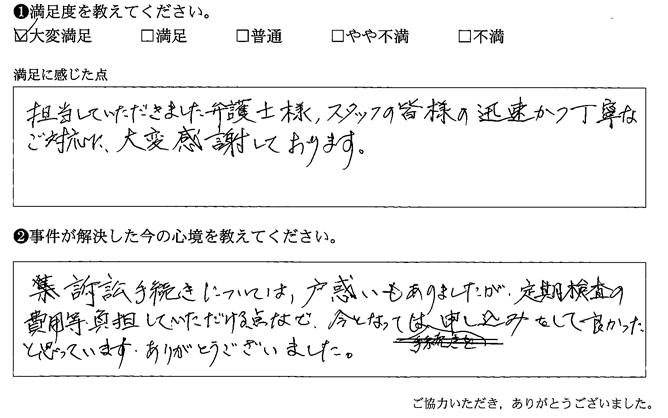 ❶満足度を教えてください。
☑大変満足 □満足 □普通 □やや不満 □不満
満足に感じた点
担当していただきました弁護士様，スタッフの皆様の迅速かつ丁寧な
ご対応に、大変感謝しております。
❷事件が解決した今の心境を教えてください。
訴訟手続きについては、戸惑いもありましたが、定期検査の
費用等負担していただける点など、今となっては申し込みをして良かった
と思っています。ありがとうございました。
ご協力いただき，ありがとうございました。